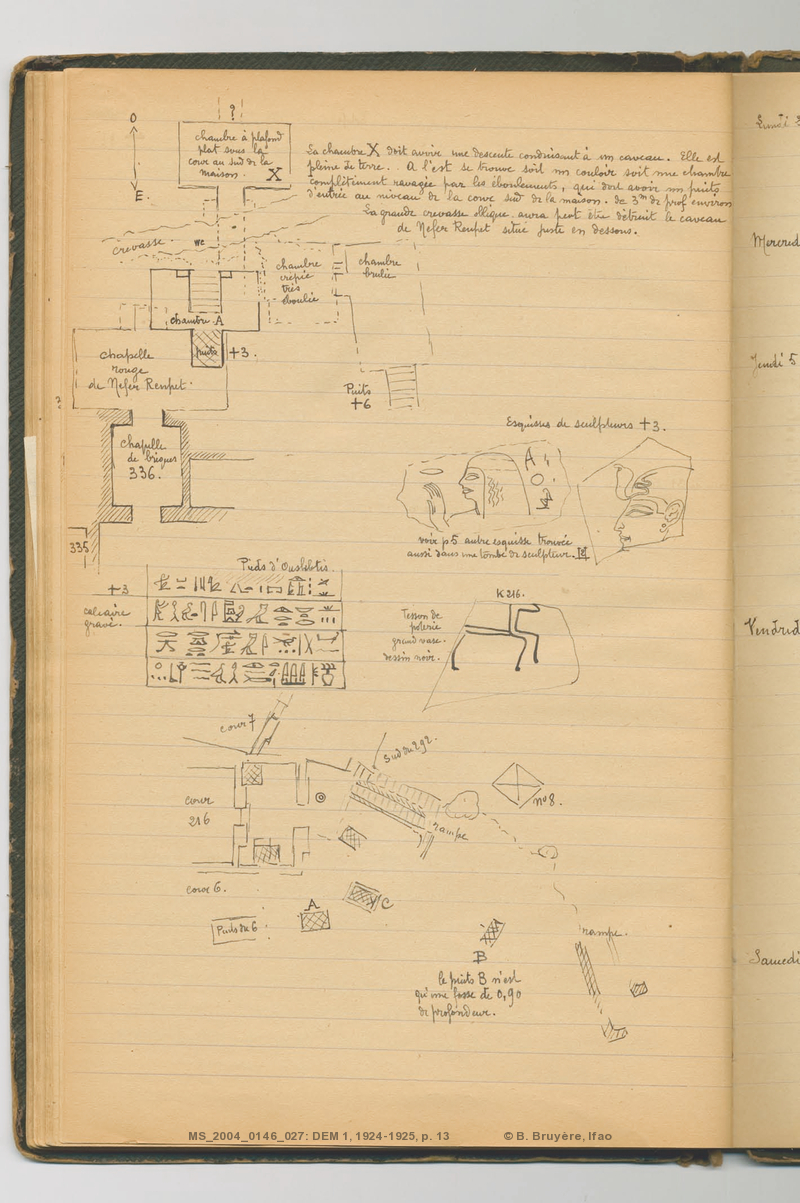 ?
O
E.
chambre à plafond
plat sous la
cour au sud de la
maison. X
La chambre X doit avoir une descente conduisant à un caveau. Elle est
pleine de terre. A l'est se trouve soit un couloir soit une chambre
complètement ravagée par les éboulements, qui doit avoir un puits
d'entrée au niveau de la cour sud de la maison. de 3m de prof environ
La grande crevasse oblique aura peut être détruit le caveau
de Nefer Renpet situé juste en dessous.
crevasse
chambre
crépie
très
éboulée
chambre
brulée
chambre A
puits
+3.
chapelle
rouge
de Nefer Renpet
Puits
+6
chapelle
de briques
336.
335
Esquisses de sculpteurs +3.
voir p 5 autre esquisse trouvée
aussi dans une tombe de sculpteur.
Pieds d'Oushebtis.
+3
calcaire
gravé.
K 216.
Tesson de
poterie
grand vase.
dessin noir.
cour 7
Sud du 292.
cour
216
rampe
n° 8.
cour 6.
Puits du 6
A
C
B
le puits B n'est
qu'une fosse de 0,90
de profondeur.
rampe.
Lundi
Mercred
Jeudi 5
Vendred
Samedi
MS_2004_0146_027: DEM 1, 1924-1925, p. 13 © B. Bruyère, Ifao